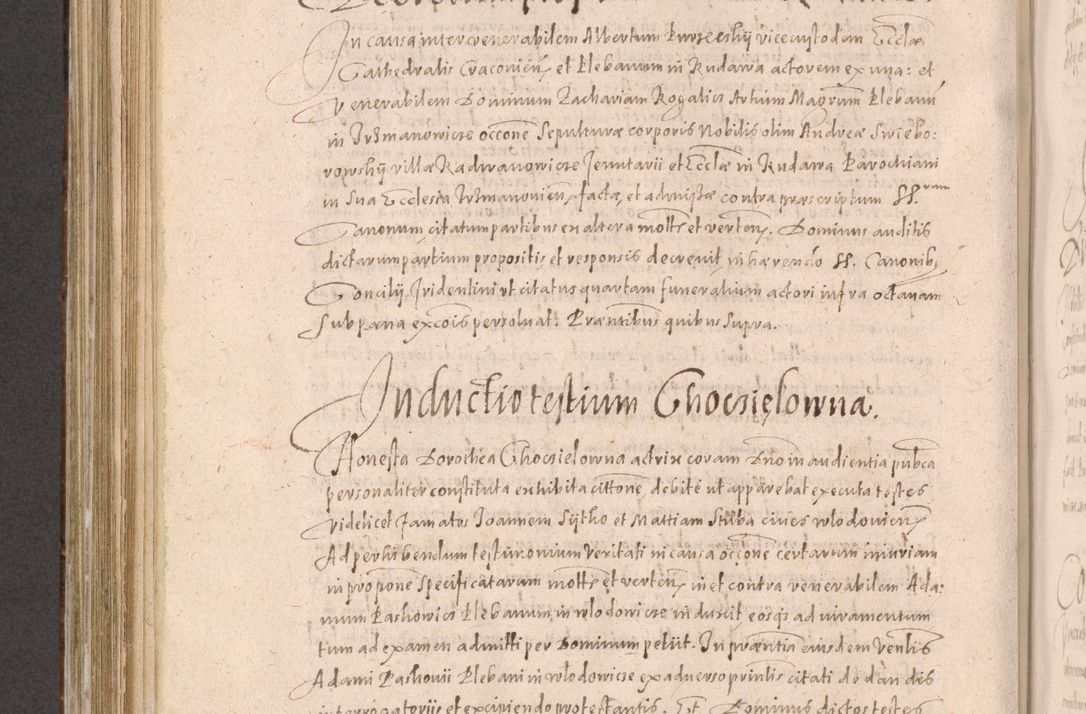 In causa inter venerabilem Albertum Kurzeskij vicecustodem Eccłæ
Cathedralis Cracovień, et Plebanum in Rudawa actorem ex una: et
Venerabilem Dominum Zachariam Rogalicz Artium Magrum Plebanū
in Irzmanowicze occone sepulturæ corporis Nobilis olim Andreæ Swiebo:
rowskij villæ Radwanowicze Jenutarii et Eccłæ in Rudawa Parochiani
in sua Ecclesia Irzmanovień, factæ, et admissæ contra præscriptum SS.rum
Canonum, citatum partibus ex altera motte et verteń. Dominus auditis
dictarum partium propositis, et responsis decrevit, inhærendo SS. Canonib9
Concilij Tridentini ut citatus quartam funeralium actori infra octavam
sub pæna excois persolvat. Præntibus quibus supra.
Inductio testium Choczielowna.
Honesta Dorothea Chocielowna actrix coram Dno in audientia pubca
personaliter constituta exhibita cittone, debite ut apparebat executa testes
videlicet famatos Joannem Sijtho et Mattiam Stuba cives wlodovień
Ad perhibendum testimonium veritati in causa occone certarum iniuriam
in propone specificatarum motte et verteń, in et contra venerabilem Ada:
mum Paskowicz Plebanum in wlodowicze induxit eosq3 ad iuramentum
tum ad examen admitti per Dominum petiit. In præntia eiusdem Venlis
Adami Paskovii Plebani in wlodowicze ex adverso prinlis citati de dan dis
interrogatorijs et excipiendo protestantis. Et Dominus dictos testes